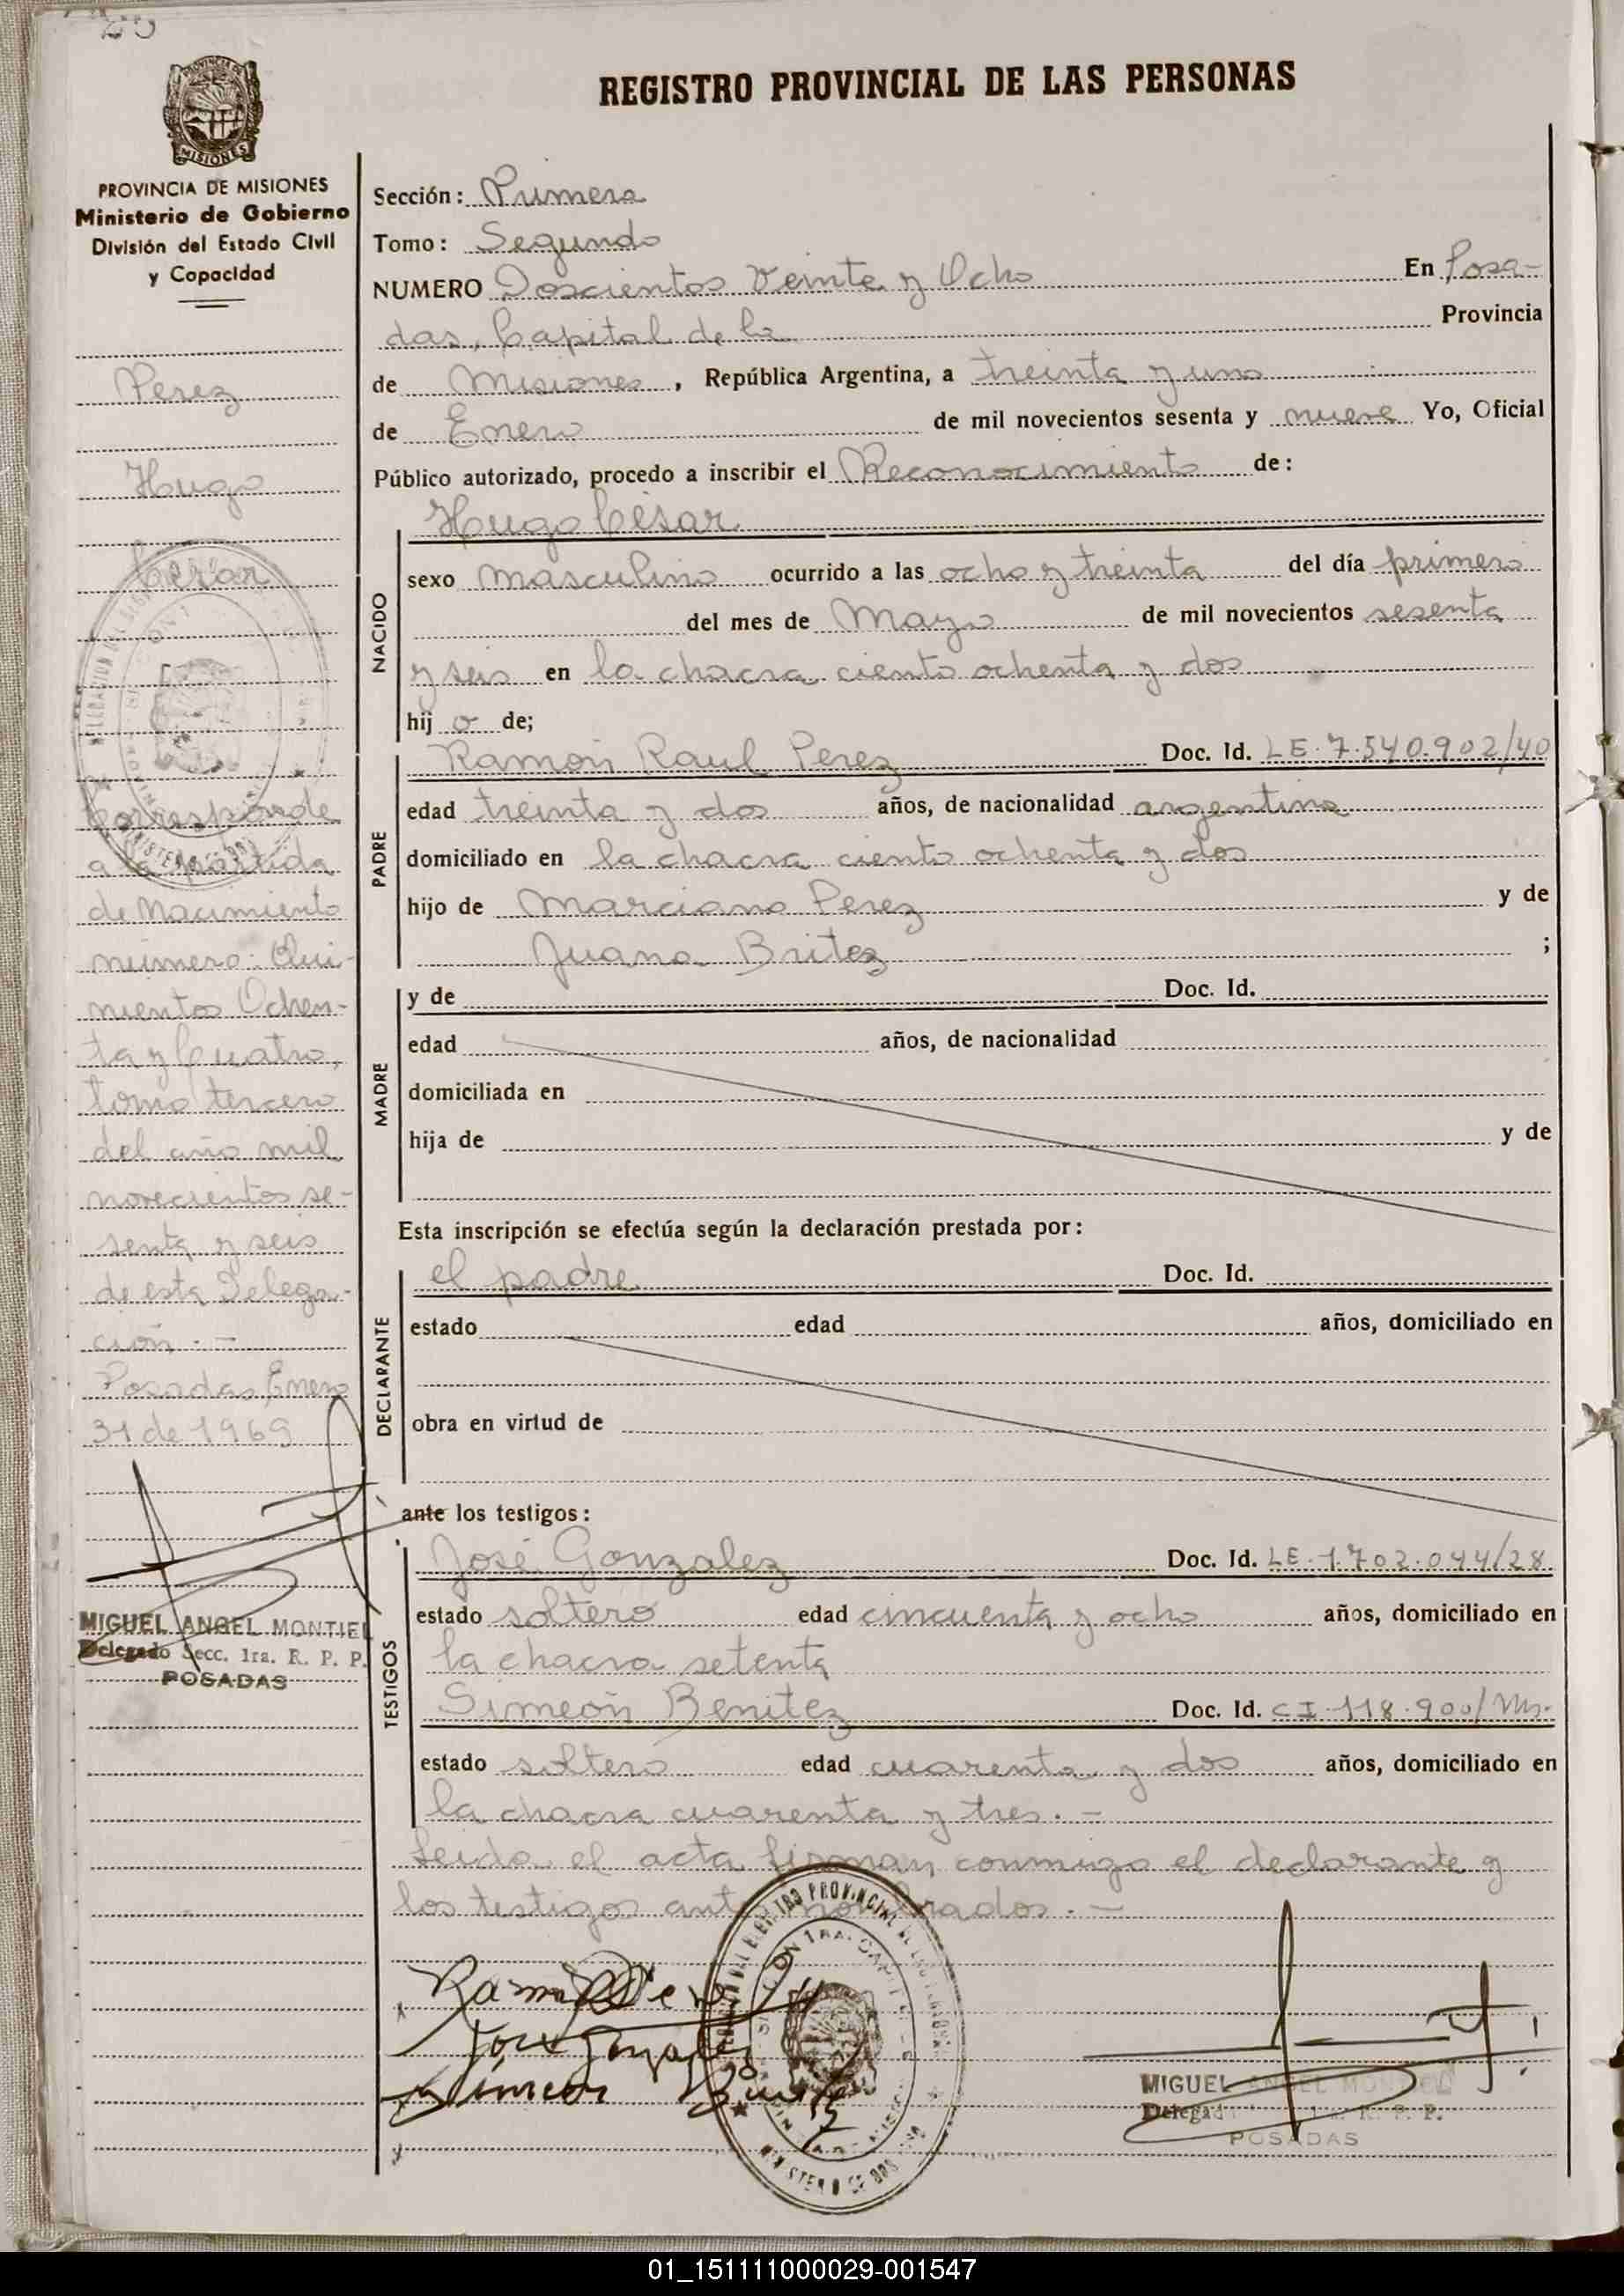 REGISTRO PROVINCIAL DE LAS PERSONAS
MISIONES
PROVINCIA DE MISIONES
Ministerio de Gobierno
División del Estado Civil
y Capacidad
Perez
Hugo
César
Corresponde
a la partida
de Nacimiento
número: Qui-
nientos Ochen-
ta y Cuatro,
tomo tercero
del año mil
novecientos se-
senta y seis
de esta Delega-
ción.-
Posadas, Enero
31 de 1969
MIGUEL ANGEL MONTIEL
Delegado Secc. 1ra. R. P. P.
POSADAS
Sección: Primera
Tomo: Segundo
NUMERO Doscientos Veinte y Ocho En Posa-
das, Capital de la Provincia
de Misiones, República Argentina, a treinta y uno
de Enero de mil novecientos sesenta y nueve Yo, Oficial
Público autorizado, procedo a inscribir el Reconocimiento de:
NACIDO
Hugo César
sexo masculino ocurrido a las ocho y treinta del día primero
del mes de Mayo de mil novecientos sesenta
y seis en la chacra ciento ochenta y dos
hijo de;
PADRE
Ramón Raul Perez Doc. Id. LE.7.540.902/40
edad treinta y dos años, de nacionalidad argentina
domiciliado en la chacra ciento ochenta y dos
hijo de Marciano Perez y de
Juana Britez ;
MADRE
y de Doc. Id.
edad años, de nacionalidad
domiciliada en
hija de y de
Esta inscripción se efectúa según la declaración prestada por:
DECLARANTE
el padre Doc. Id.
estado edad años, domiciliado en
obra en virtud de
ante los testigos:
TESTIGOS
José Gonzalez Doc. Id. LE.1.702.044/28
estado soltero edad cincuenta y ocho años, domiciliado en
la chacra setenta
Simeón Benitez Doc. Id. CI.118.900/Ms.
estado soltero edad cuarenta y dos años, domiciliado en
la chacra cuarenta y tres.-
Leida el acta firman conmigo el declarante y
los testigos antes nombrados.-
Jose Gonzalez
Simeon
MIGUEL ANGEL MONTIEL
Delegado 1ra. R. P. P.
POSADAS
01_151111000029-001547